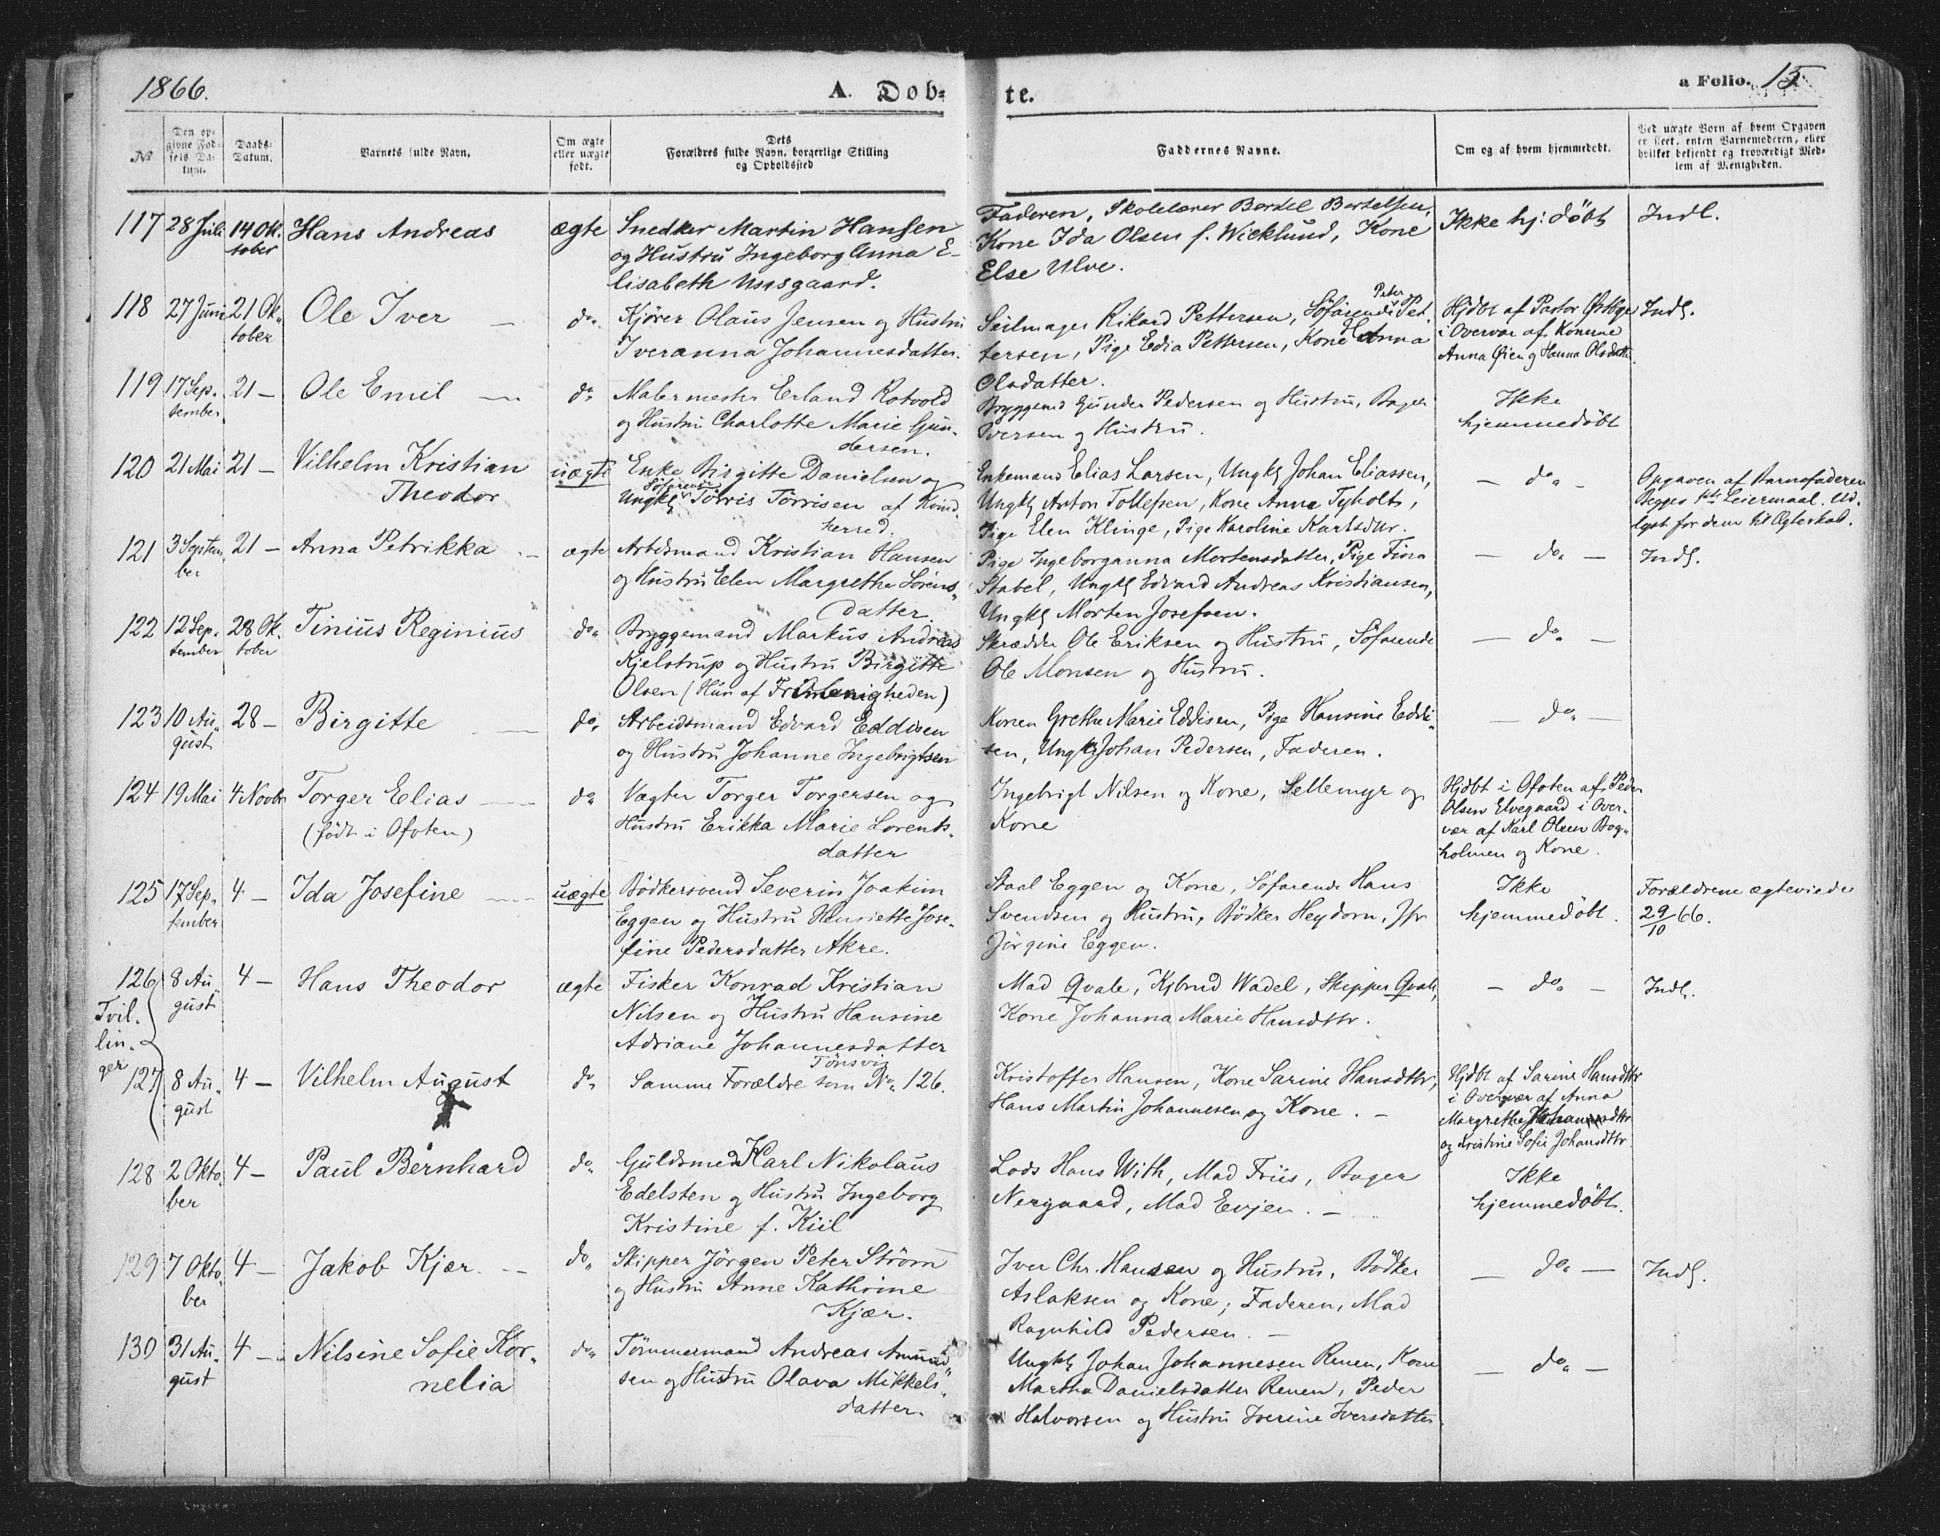 1866. A. Dob- te. a Folio. 15
№ Den opgivne Fødsels Datum. Daabs-Datum. Barnets fulde Navn. Om ægte eller uægte født. Dets Forældres fulde Navn, borgerlige Stilling og Opholdssted Faddernes Navne. Om og af hvem hjemmedøbt. Ved uægte Børn af hvem Opgaven er skeet, enten Barnemoderen, eller hvilket bekjendt og troværdigt Medlem af Menigheden.
117 28 Juli 14 Ok- Hans Andreas ægte Snedker Martin Hansen Faderen, Skolelærer Bertel Bertelsen, Ikke hj: døbt Indl.
tober og Hustru Ingeborg Anna E- Kone Ida Olsen f. Wicklund, Kone
lisabeth Unsgaard. Else Ulve.
118 27 Juni 21 Ok- Ole Iver — do. Kjører Olaus Jensen og Hustru Seilmager Rikard Pettersen, Søfarende Peter Pet- Hjdbt af Pastor Indl.
tober Iveranna Johannesdatter. tersen, Pige Edia Pettersen, Kone Hanna i Overvær af Konerne
Olsdatter. Anna Øien og Hanna Olsdatt
119 17 Sep- 21 — Ole Emil — do. Malermester Erland Rotvold Bryggemd Gunder Pedersen og Hustru, Bager Ikke
tember og Hustru Charlotte Marie Gun- Iversen og Hustru. hjemmedøbt
dersen.
120 21 Mai 21 — Vilhelm Kristian uægte Enke Birgitte Danielsen og Enkemand Elias Larsen, Ungk Johan Eliassen, — do. — Opgaven af Barnefaderen
Theodor Ungk Søfarende Törris Törrisen af Ungk Anton Tollefsen, Kone Anna Tyholt, Begges 1ste Leiermaal. Ud-
herred. Pige Elen Klinge, Pige Karoline Karlsdtr. lyst for dem til Ægteskab.
121 3 Septem- 21 — Anna Petrikka — ægte Arbdsmand Kristian Hansen Pige Ingeborganna Mortensdatter, Pige Fina — do. — Indl.
ber og Hustru Elen Margrethe Sörens- Stabel, Ungk Edvard Andreas Kristiansen,
datter. Ungk Morten Josefsen.
122 12 Sep- 28 Ok- Tinius Reginius do. Bryggemand Markus Andreas Skrædder Ole Eriksen og Hustru, Söfarende — do. —
tember tober Kjelstrup og Hustru Birgitte Ole Monsen og Hustru.
Olsen (Hun af Frimenigheden)
123 10 Au- 28 — Birgitte — do. Arbeidsmand Edvard Eddisen Konen Grethe Marie Eddisen, Pige Hansine Eddi- — do. —
gust og Hustru Johanne Ingebrigtsen sen, Ungk Johan Pedersen, Faderen.
124 19 Mai 4 Novbr Torger Elias — do. Vægter Torger Torgersen og Ingebrigt Nilsen og Kone, Sellemyr og Hjdbt i Ofoten af Peder
(født i Ofoten) Hustru Erikka Marie Lorents- Kone Olsen Elvegaard i Over-
datter vær af Karl Olsen Bog-
holmen og Kone.
125 17 Sep- 4 — Ida Josefine — uægte Bödkersvend Severin Joakim Staal Eggen og Kone, Söfarende Hans Ikke Forældrene ægteviede
tember Eggen og Hustru Henriette Jose- Svendsen og Hustru, Bödker Heydorn, Jfr hjemmedöbt. 29/10 66.
fine Pedersdatter Akre. Jörgine Eggen.
126 8 Au- 4 — Hans Theodor ægte Fisker Konrad Kristian Mad Qvale, Kjbmd Wadel, Skipper Qvale, — do. — Indl.
Tvil- gust Nilsen og Hustru Hansine Kone Johanna Marie Hansdttr.
lin- Adriane Johannesdatter
ger Tönsvig
127 8 Au- 4 — Vilhelm August do. Samme Forældre som No. 126. Kristoffer Hansen, Kone Sarine Hansdttr, Hjdbt af Sarine Hansdttr
gust Hans Martin Johannesen og Kone. — i Overvær af Anna
Margrethe
og Kristine Sofie Johansdttr
128 2 Okto- 4 — Paul Bernhard do. Guldsmed Karl Nikolaus Lods Hans With, Mad Friis, Bager Ikke
ber Edelsten og Hustru Ingeborg Nergaard, Mad Evjen. — hjemmedöbt.
Kristine f. Kiil
129 7 Okto- 4 — Jakob Kjær. — do. Skipper Jörgen Peter Ström Iver Chr. Hansen og Hustru, Bödker — do. — Indl.
ber og Hustru Anne Kathrine Aslaksen og Kone; Faderen, Mad
Kjær. Ragnhild Pedersen. —
130 31 Au- 4 — Nilsine Sofie Kor- do. Tömmermand Andreas Amund- Ungk Johan Johannesen Renen, Kone — do. —
gust nelia sen og Hustru Olava Mikkels- Martha Danielsdatter Renen, Peder
datter. Halvorsen og Hustru Iverine Iversdatter.